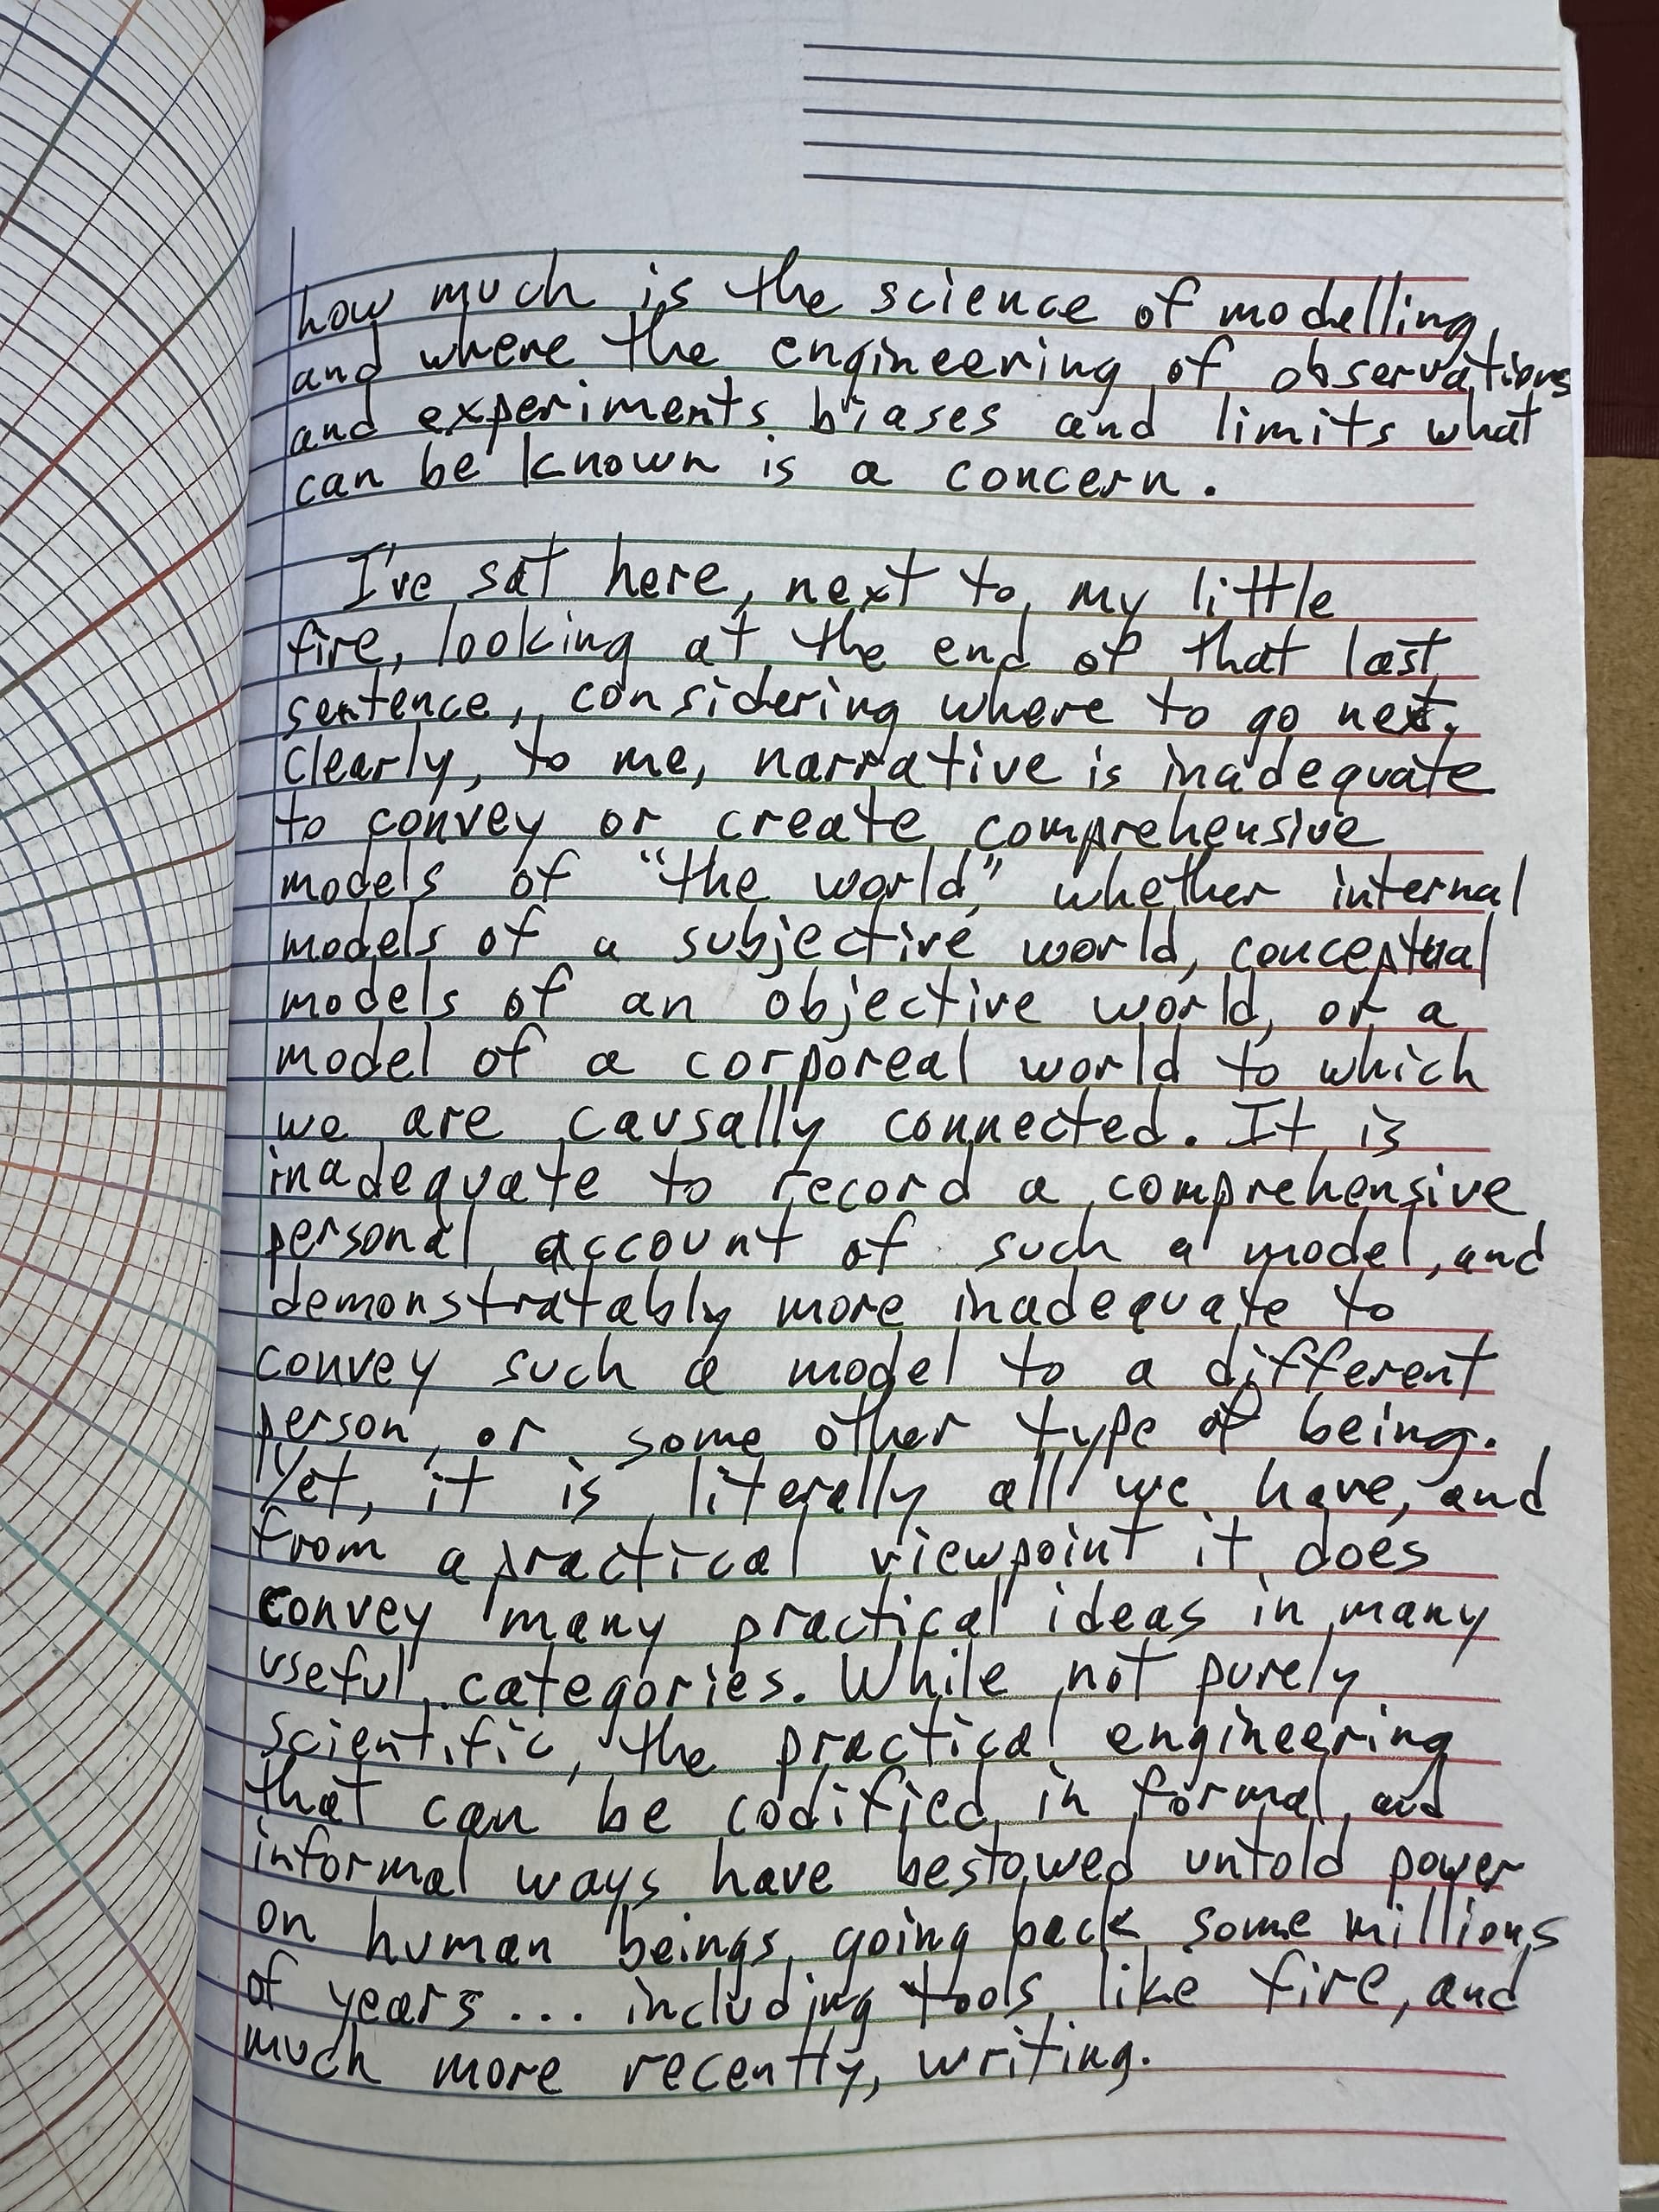 how much is the science of modelling,
and where the engineering of observations
and experiments biases and limits what
can be known is a concern.
I've sat here, next to my little
fire, looking at the end of that last
sentence, considering where to go next.
Clearly, to me, narrative is inadequate
to convey or create comprehensive
models of "the world," whether internal
models of a subjective world, conceptual
models of an objective world, or a
model of a corporeal world to which
we are causally connected. It is
inadequate to record a comprehensive
personal account of such a model, and
demonstratably more inadequate to
convey such a model to a different
person, or some other type of being.
Yet, it is literally all we have, and
from a practical viewpoint it does
convey many practical ideas in many
useful categories. While not purely
scientific, the practical engineering
that can be codified in formal and
informal ways have bestowed untold power
on human beings going back some millions
of years... including tools like fire, and
much more recently, writing.